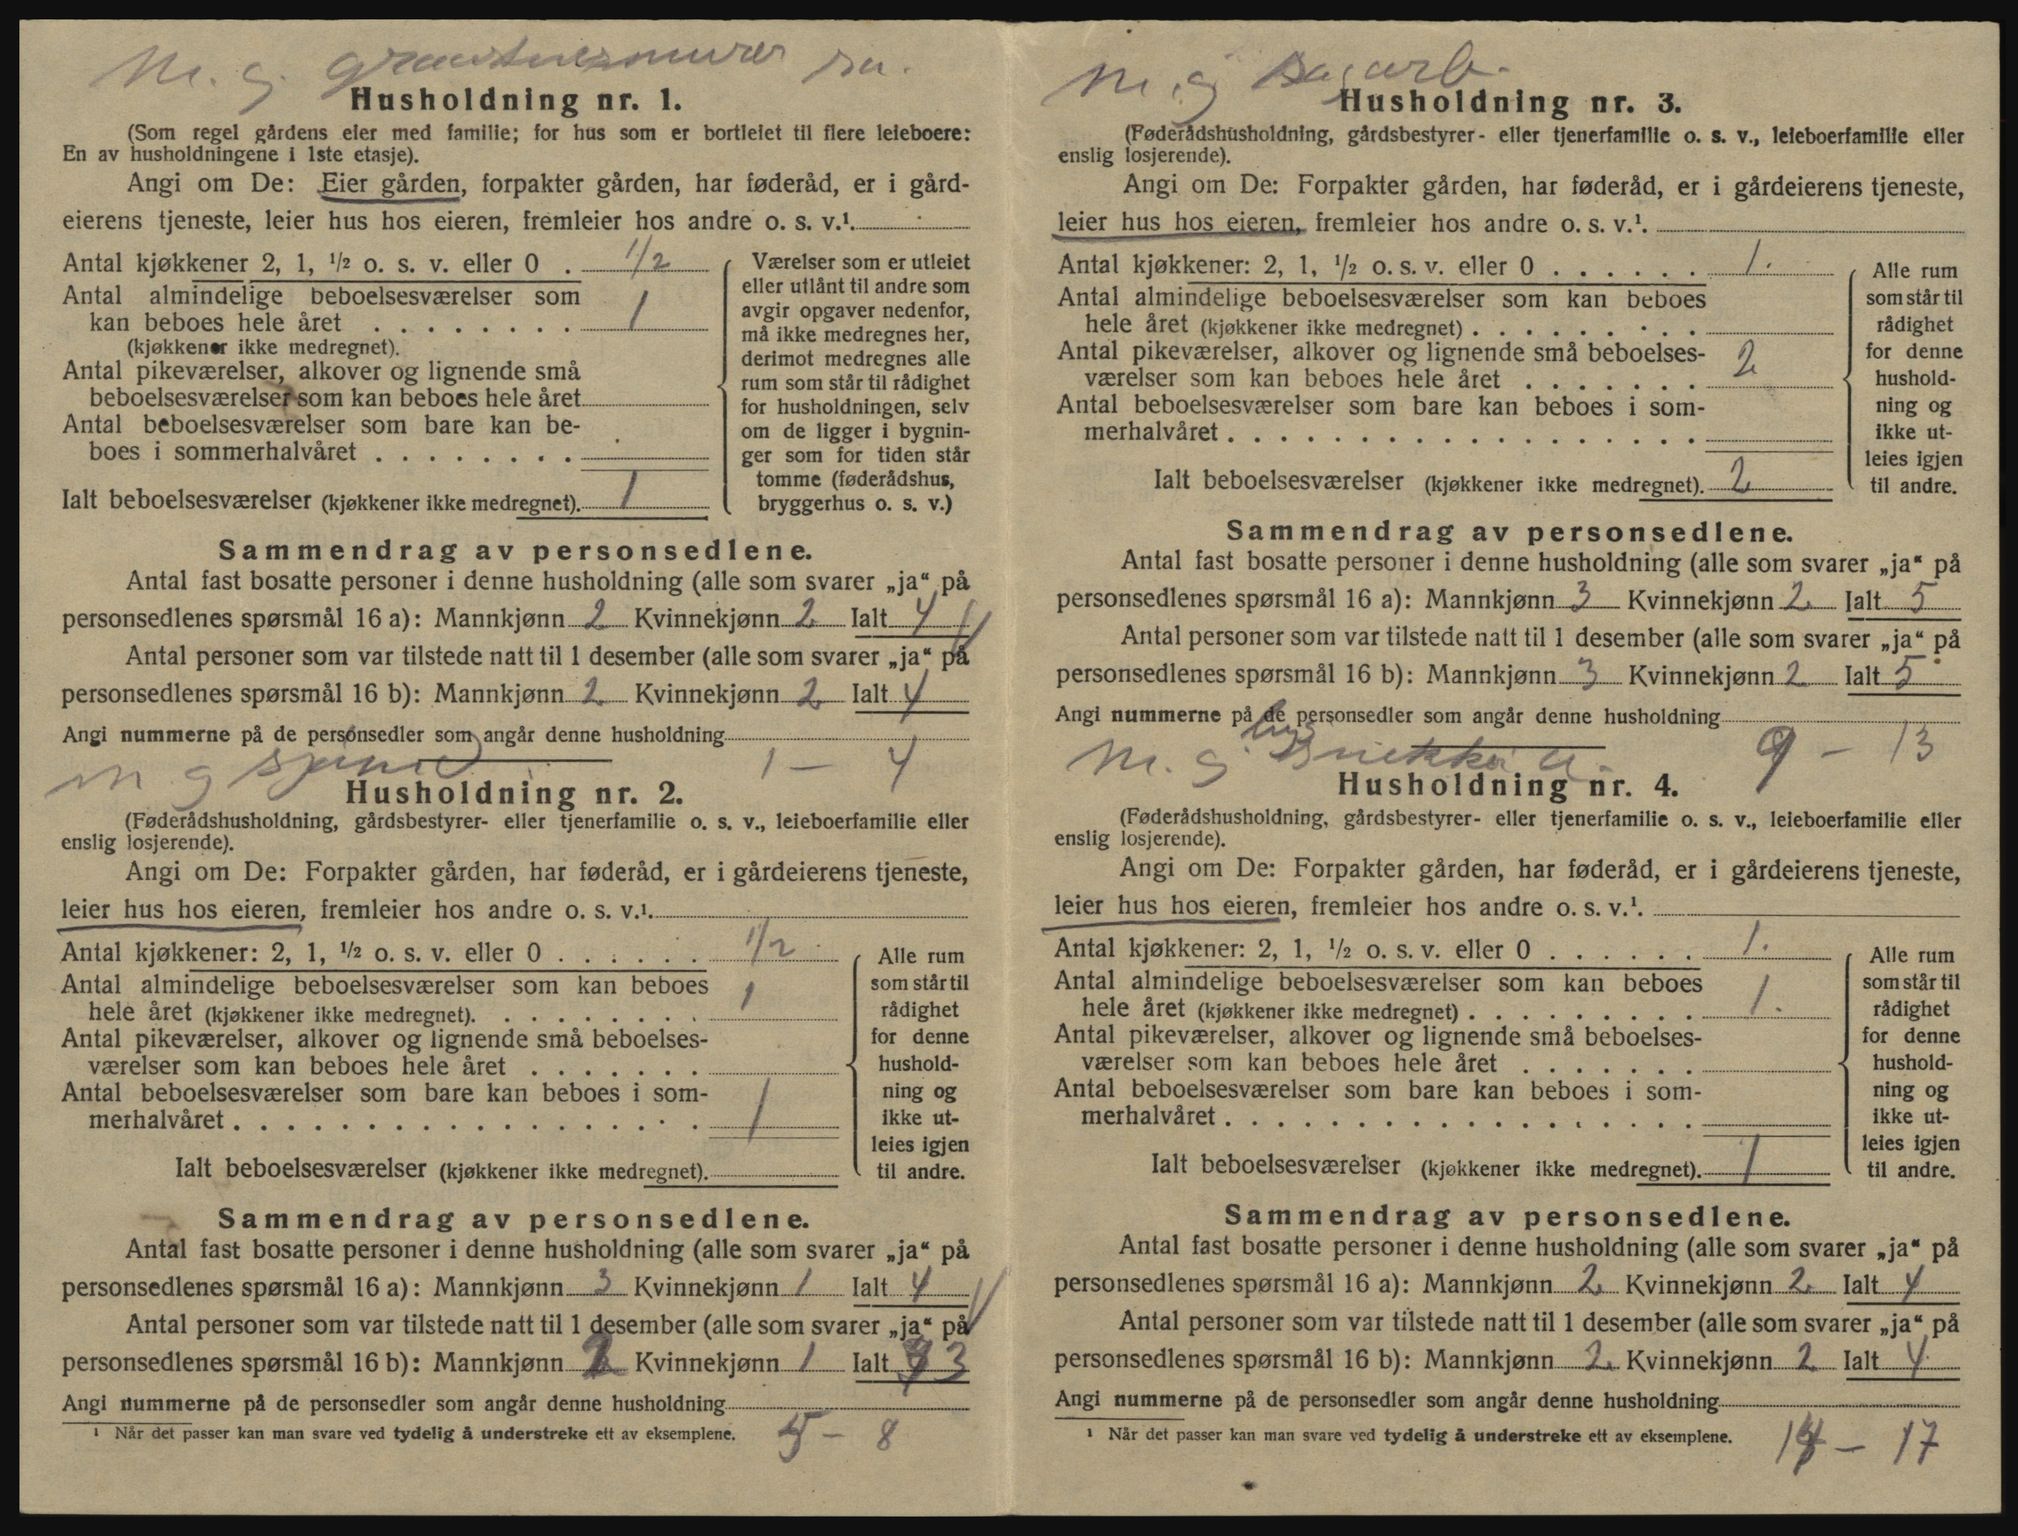 M. g.
Husholdning nr. 1.
(Som regel gårdens eier med familie; for hus som er bortleiet til flere leieboere:
En av husholdningene i 1ste etasje).
Angi om De: Eier gården, forpakter gården, har føderåd, er i gård-
eierens tjeneste, leier hus hos eieren, fremleier hos andre o. s. v.¹.
Antal kjøkkener 2, 1, ½ o. s. v. eller 0 . 1/2
Antal almindelige beboelsesværelser som
kan beboes hele året . . . . . . . . 1
(kjøkkener ikke medregnet).
Antal pikeværelser, alkover og lignende små
beboelsesværelser som kan beboes hele året
Antal beboelsesværelser som bare kan be-
boes i sommerhalvåret . . . . . . . .
Ialt beboelsesværelser (kjøkkener ikke medregnet). 1
Værelser som er utleiet
eller utlånt til andre som
avgir opgaver nedenfor,
må ikke medregnes her,
derimot medregnes alle
rum som står til rådighet
for husholdningen, selv
om de ligger i bygnin-
ger som for tiden står
tomme (føderådshus,
bryggerhus o. s. v.)
Sammendrag av personsedlene.
Antal fast bosatte personer i denne husholdning (alle som svarer „ja“ på
personsedlenes spørsmål 16 a): Mannkjønn 2 Kvinnekjønn 2 Ialt 4
Antal personer som var tilstede natt til 1 desember (alle som svarer „ja“ på
personsedlenes spørsmål 16 b): Mannkjønn 2 Kvinnekjønn 2 Ialt 4
Angi nummerne på de personsedler som angår denne husholdning
1 – 4
m g
Husholdning nr. 2.
(Føderådshusholdning, gårdsbestyrer- eller tjenerfamilie o. s. v., leieboerfamilie eller
enslig losjerende).
Angi om De: Forpakter gården, har føderåd, er i gårdeierens tjeneste,
leier hus hos eieren, fremleier hos andre o. s. v.¹.
Antal kjøkkener: 2, 1, ½ o. s. v. eller 0 . . . . . . 1/2
Antal almindelige beboelsesværelser som kan beboes
hele året (kjøkkener ikke medregnet). . . . . . . . . 1
Antal pikeværelser, alkover og lignende små beboelses-
værelser som kan beboes hele året . . . . . . .
Antal beboelsesværelser som bare kan beboes i som-
merhalvåret . . . . . . . . . . . . . . . . . . 1
Ialt beboelsesværelser (kjøkkener ikke medregnet).
Alle rum
som står til
rådighet
for denne
hushold-
ning og
ikke ut-
leies igjen
til andre.
Sammendrag av personsedlene.
Antal fast bosatte personer i denne husholdning (alle som svarer „ja“ på
personsedlenes spørsmål 16 a): Mannkjønn 3 Kvinnekjønn 1 Ialt 4
Antal personer som var tilstede natt til 1 desember (alle som svarer „ja“ på
personsedlenes spørsmål 16 b): Mannkjønn 2 Kvinnekjønn 1 Ialt 3
Angi nummerne på de personsedler som angår denne husholdning
5 – 8
¹ Når det passer kan man svare ved tydelig å understreke ett av eksemplene.
M. g
Husholdning nr. 3.
(Føderådshusholdning, gårdsbestyrer- eller tjenerfamilie o. s. v., leieboerfamilie eller
enslig losjerende).
Angi om De: Forpakter gården, har føderåd, er i gårdeierens tjeneste,
leier hus hos eieren, fremleier hos andre o. s. v.¹.
Antal kjøkkener: 2, 1, ½ o. s. v. eller 0 . . . . . . 1.
Antal almindelige beboelsesværelser som kan beboes
hele året (kjøkkener ikke medregnet) . . . . . . . . .
Antal pikeværelser, alkover og lignende små beboelses- 2
værelser som kan beboes hele året . . . . . . .
Antal beboelsesværelser som bare kan beboes i som-
merhalvåret . . . . . . . . . . . . . . . . . .
Ialt beboelsesværelser (kjøkkener ikke medregnet). 2
Alle rum
som står til
rådighet
for denne
hushold-
ning og
ikke ut-
leies igjen
til andre.
Sammendrag av personsedlene.
Antal fast bosatte personer i denne husholdning (alle som svarer „ja“ på
personsedlenes spørsmål 16 a): Mannkjønn 3 Kvinnekjønn 2 Ialt 5
Antal personer som var tilstede natt til 1 desember (alle som svarer „ja“ på
personsedlenes spørsmål 16 b): Mannkjønn 3 Kvinnekjønn 2 Ialt 5
Angi nummerne på de personsedler som angår denne husholdning
9 – 13
M. g
Husholdning nr. 4.
(Føderådshusholdning, gårdsbestyrer- eller tjenerfamilie o. s. v., leieboerfamilie eller
enslig losjerende).
Angi om De: Forpakter gården, har føderåd, er i gårdeierens tjeneste,
leier hus hos eieren, fremleier hos andre o. s. v.¹.
Antal kjøkkener: 2, 1, ½ o. s. v. eller 0 . . . . . . 1.
Antal almindelige beboelsesværelser som kan beboes
hele året (kjøkkener ikke medregnet) . . . . . . . . . 1.
Antal pikeværelser, alkover og lignende små beboelses-
værelser som kan beboes hele året . . . . . . .
Antal beboelsesværelser som bare kan beboes i som-
merhalvåret . . . . . . . . . . . . . . . . . .
Ialt beboelsesværelser (kjøkkener ikke medregnet). 1
Alle rum
som står til
rådighet
for denne
hushold-
ning og
ikke ut-
leies igjen
til andre.
Sammendrag av personsedlene.
Antal fast bosatte personer i denne husholdning (alle som svarer „ja“ på
personsedlenes spørsmål 16 a): Mannkjønn 2 Kvinnekjønn 2 Ialt 4
Antal personer som var tilstede natt til 1 desember (alle som svarer „ja“ på
personsedlenes spørsmål 16 b): Mannkjønn 2 Kvinnekjønn 2 Ialt 4
Angi nummerne på de personsedler som angår denne husholdning
14 – 17
¹ Når det passer kan man svare ved tydelig å understreke ett av eksemplene.